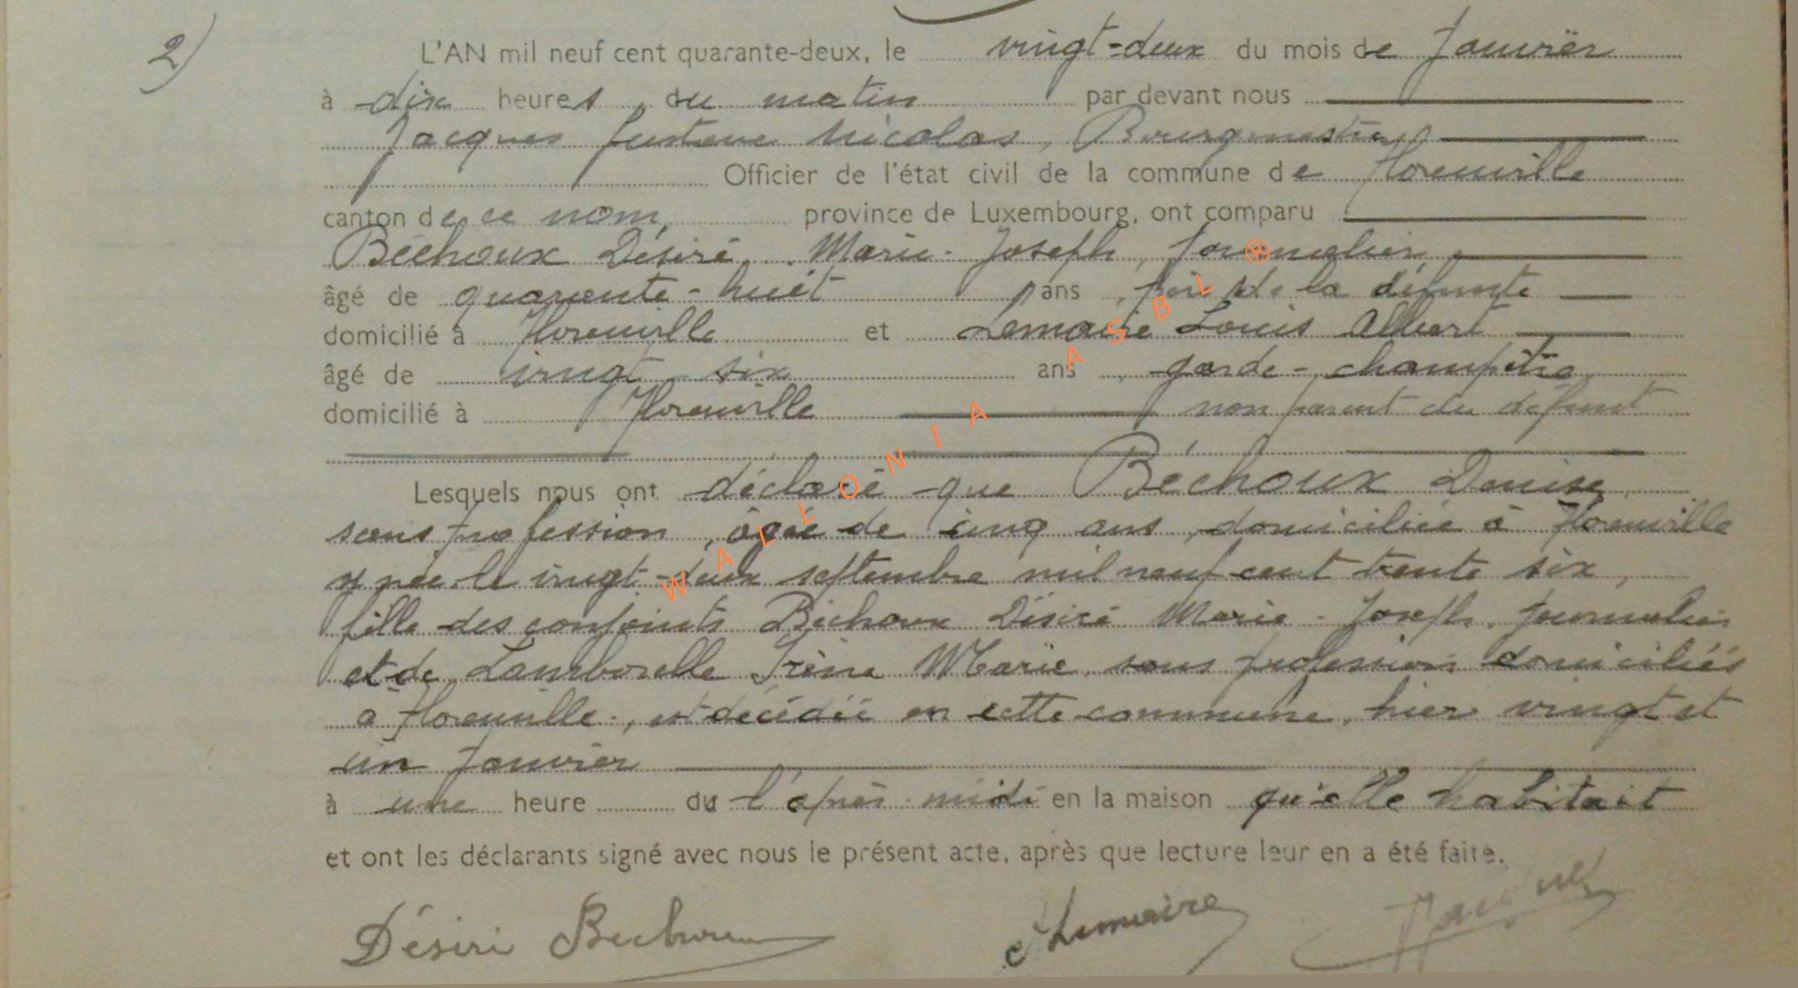 2)
L'AN mil neuf cent quarante-deux, le vingt-deux du mois de Janvier
à dix heures du matin par devant nous
Jacques Gustave Nicolas, Bourgmestre
Officier de l'état civil de la commune de Florenville
canton de ce nom, province de Luxembourg, ont comparu
Béchoux Désiré Marie-Joseph, Journalier
âgé de quarante-huit ans, père de la défunte
domicilié à Florenville et Lemaire Louis Albert
âgé de vingt-six ans, garde-champêtre
domicilié à Florenville non parent du défunt
Lesquels nous ont déclaré que Béchoux Denise
sans profession, âgée de cinq ans, domiciliée à Florenville
y née le vingt-deux septembre mil neuf cent trente six,
fille des conjoints Béchoux Désiré Marie-Joseph, Journalier
et de Lamborelle Irène Marie sans profession domiciliés
à Florenville, est décédée en cette commune, hier vingt et
un Janvier
à une heure du l'après-midi en la maison qu'elle habitait
et ont les déclarants signé avec nous le présent acte, après que lecture leur en a été faite.
Désiré Béchoux Lemaire Jacques
WALLONIA ASBL ®